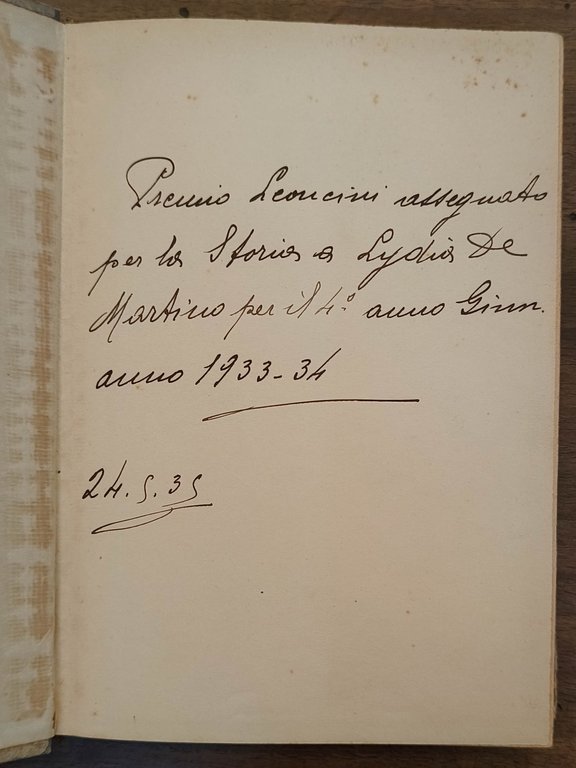 Premio Leoncini assegnato
per la Storia a Lydia De
Martino per il 4° anno Ginn.
anno 1933-34
24.5.35